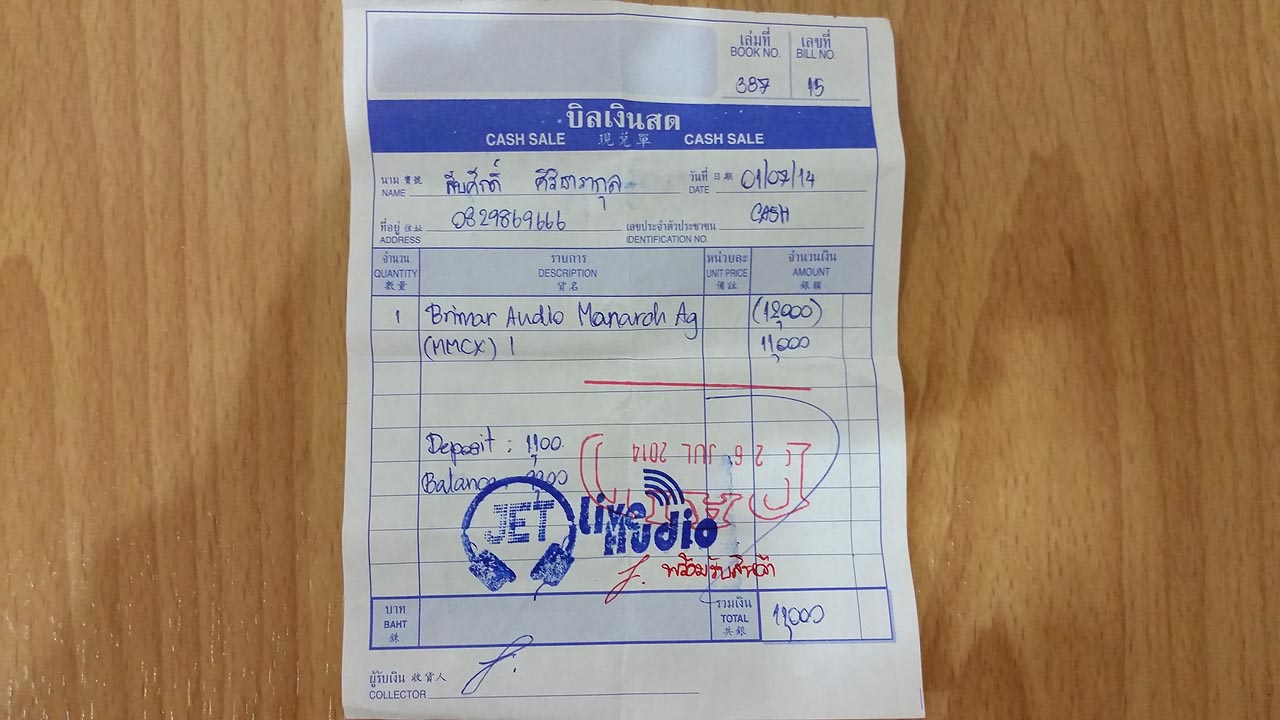 เล่มที่ เลขที่
BOOK NO. BILL NO.
387 15
บิลเงินสด
CASH SALE 現兌單 CASH SALE
นาม 寶號 สืบศักดิ์ ศิริธารากุล วันที่ 日期 01/07/14
NAME DATE
ที่อยู่ 住址 0829869666 เลขประจำตัวประชาชน CASH
ADDRESS IDENTIFICATION NO.
จำนวน รายการ หน่วยละ จำนวนเงิน
QUANTITY DESCRIPTION UNIT PRICE AMOUNT
數量 貨名 備註 銀額
1 Brimar Audio Manarch Ag (12,000)
(MMCX) 1 11,000
Deposit : 1,100
Balance 9,900
PAID
2 6 JUL 2014
JET Live Audio
พร้อมรับสินค้า
บาท รวมเงิน
BAHT TOTAL 11,000
銖 共銀
ผู้รับเงิน 收貨人
COLLECTOR